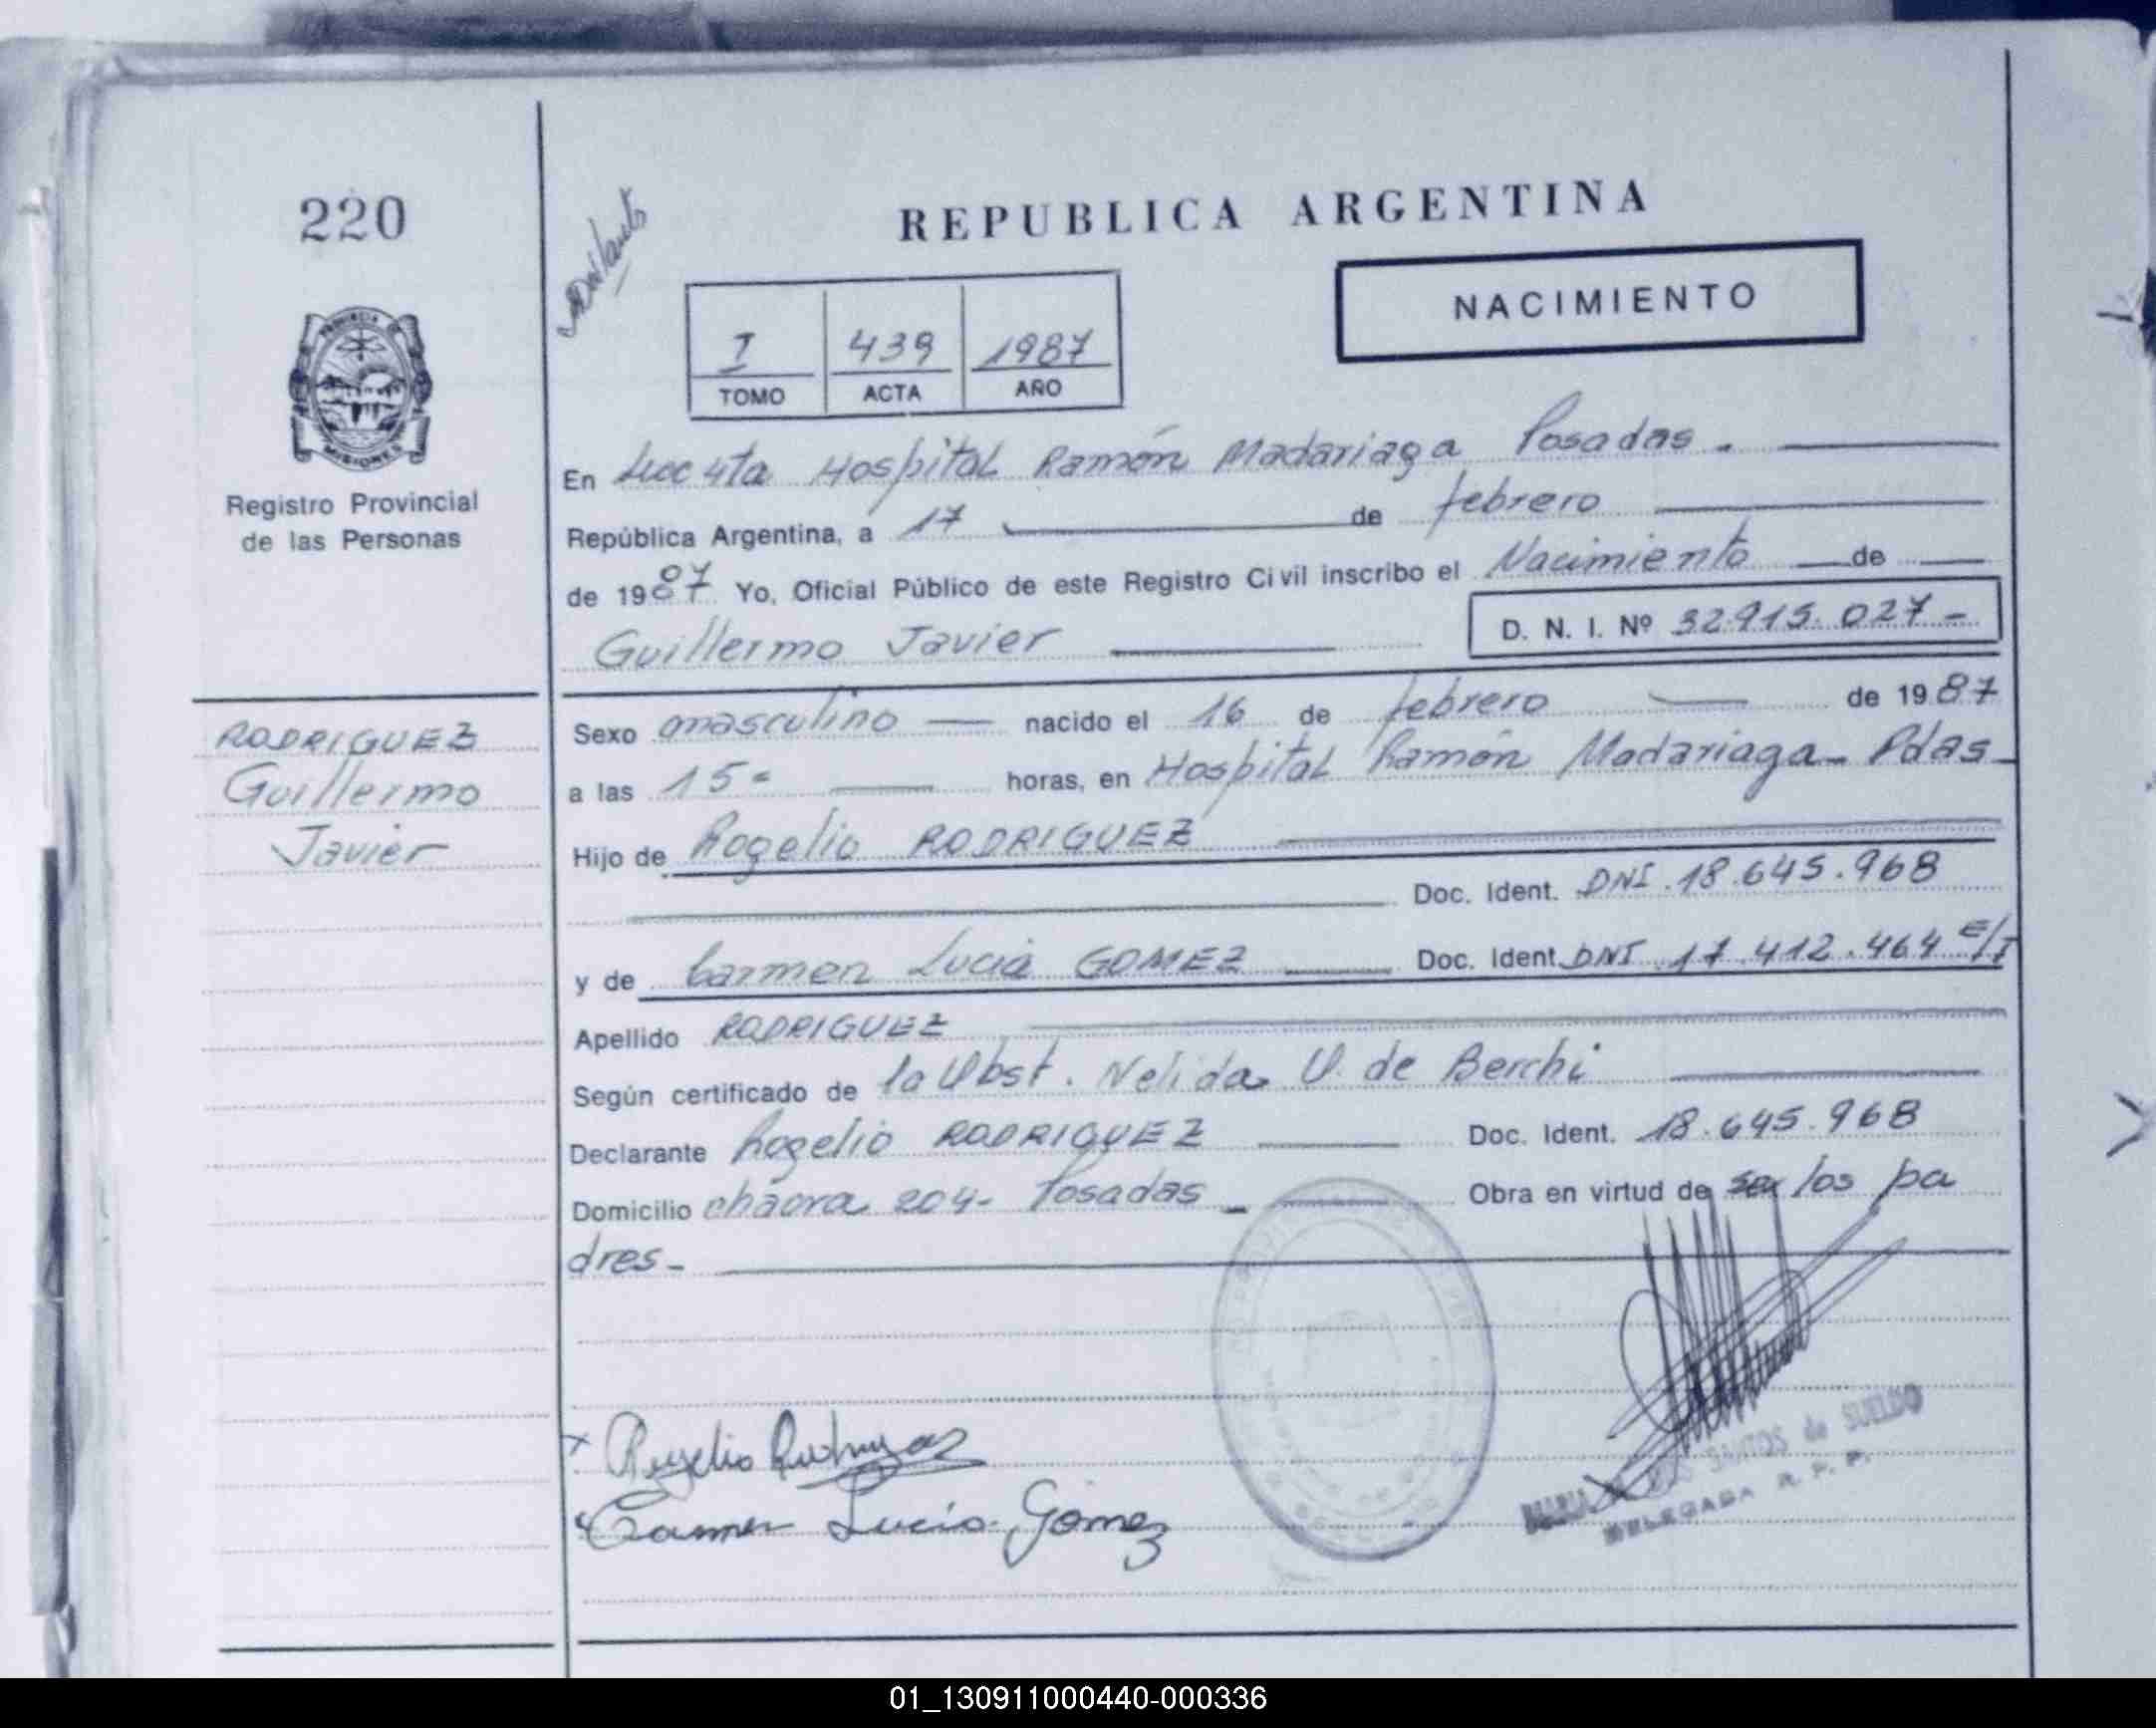 220
REPUBLICA ARGENTINA
NACIMIENTO
I 439 1987
TOMO ACTA AÑO
PROVINCIA DE
MISIONES
Registro Provincial
de las Personas
En Secc 4ta Hospital Ramón Madariaga Posadas.
República Argentina, a 17 de febrero
de 1987 Yo, Oficial Público de este Registro Civil inscribo el Nacimiento de
Guillermo Javier D. N. I. Nº 32.915.027-
RODRIGUEZ
Guillermo
Javier
Sexo masculino nacido el 16 de febrero de 1987
a las 15= horas, en Hospital Ramón Madariaga- Pdas-
Hijo de Rogelio RODRIGUEZ
Doc. Ident. DNI.18.645.968
y de Carmen Lucia GOMEZ Doc. Ident DNI 17.412.464 E/T
Apellido RODRIGUEZ
Según certificado de la Obst. Nelida U. de Berchi
Declarante Rogelio RODRIGUEZ Doc. Ident. 18.645.968
Domicilio chacra 204- Posadas - Obra en virtud de ser los pa
dres-
Rogelio Rodriguez
Carmen Lucia Gómez
SANTOS de SUELDO
DELEGADA R. P. P.
01_130911000440-000336